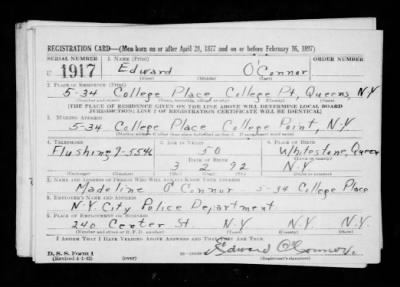 REGISTRATION CARD—(Men born on or after April 28, 1877 and on or before February 16, 1897)
SERIAL NUMBER 1. NAME (Print) ORDER NUMBER
U 1917 Edward O'Connor
(First) (Middle) (Last)
2. PLACE OF RESIDENCE (Print)
5-34 College Place College Pt, Queens N.Y
(Number and street) (Town, township, village, or city) (County) (State)
[THE PLACE OF RESIDENCE GIVEN ON THE LINE ABOVE WILL DETERMINE LOCAL BOARD
JURISDICTION; LINE 2 OF REGISTRATION CERTIFICATE WILL BE IDENTICAL]
3. MAILING ADDRESS
5-34 College Place College Point, N.Y.
4. TELEPHONE 5. AGE IN YEARS 6. PLACE OF BIRTH
Flushing 9-5546 50 Whitestone, Queens
DATE OF BIRTH
3 2 92 N.Y
7. NAME AND ADDRESS OF PERSON WHO WILL ALWAYS KNOW YOUR ADDRESS
Madeline O'Connor 5-34 College Place
8. EMPLOYER'S NAME AND ADDRESS
N.Y. City Police Department
9. PLACE OF EMPLOYMENT OR BUSINESS
240 Center St. N.Y N.Y. N.Y.
(Number and street or R. F. D. number) (Town) (County) (State)
I AFFIRM THAT I HAVE VERIFIED ABOVE ANSWERS AND THAT THEY ARE TRUE.
D. S. S. Form 1 Edward O'Connor.
(Revised 4-1-42) (over) (Registrant's signature)